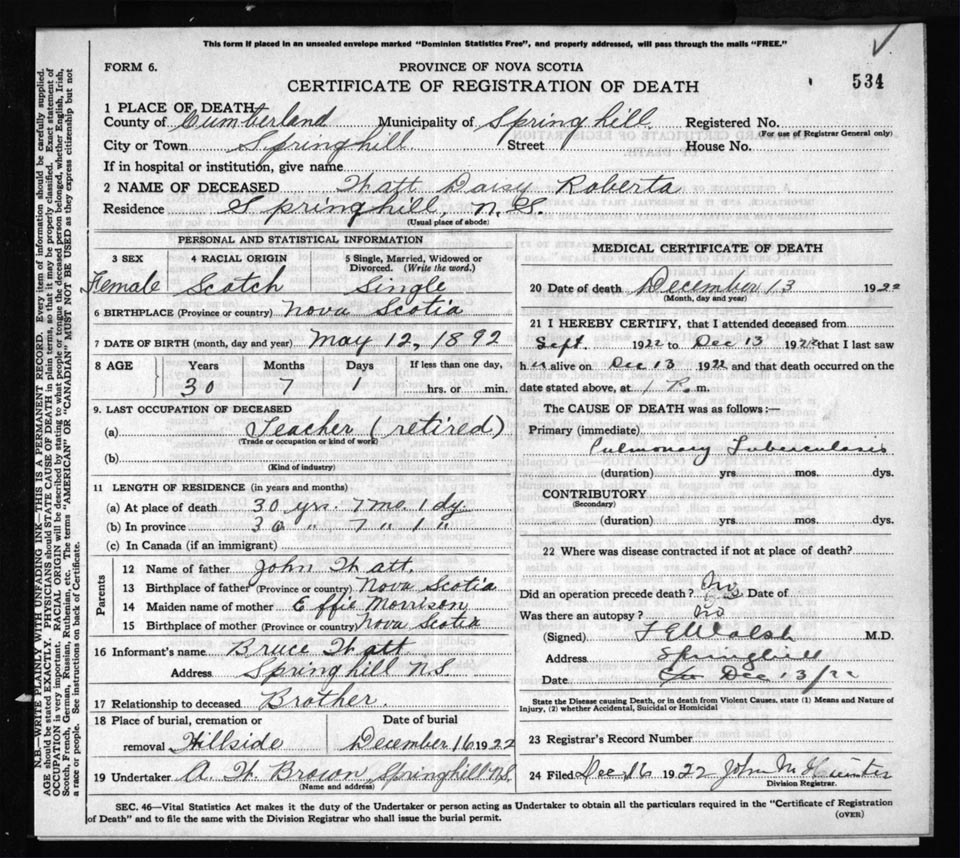 This form if placed in an unsealed envelope marked "Dominion Statistics Free", and properly addressed, will pass through the mails "FREE."
FORM 6.
PROVINCE OF NOVA SCOTIA
CERTIFICATE OF REGISTRATION OF DEATH
534
1 PLACE OF DEATH
County of Cumberland Municipality of Springhill Registered No.
(For use of Registrar General only)
City or Town Springhill Street House No.
If in hospital or institution, give name
2 NAME OF DECEASED Daisy Roberta
Residence Springhill, N.S.
(Usual place of abode)
PERSONAL AND STATISTICAL INFORMATION
3 SEX 4 RACIAL ORIGIN 5 Single, Married, Widowed or Divorced. (Write the word.)
Female Scotch Single
6 BIRTHPLACE (Province or country) Nova Scotia
7 DATE OF BIRTH (month, day and year) May 12, 1892
8 AGE Years Months Days If less than one day,
30 7 1 hrs. or min.
9. LAST OCCUPATION OF DECEASED
(a) Teacher (retired)
(Trade or occupation or kind of work)
(b)
(Kind of industry)
11 LENGTH OF RESIDENCE (in years and months)
(a) At place of death 30 yrs. 7 mo 1 dy.
(b) In province 30 " 7 " 1 "
(c) In Canada (if an immigrant)
Parents
12 Name of father John
13 Birthplace of father (Province or country) Nova Scotia
14 Maiden name of mother Effie Morrison
15 Birthplace of mother (Province or country) Nova Scotia
16 Informant's name Bruce
Address Springhill N.S.
17 Relationship to deceased Brother.
18 Place of burial, cremation or Date of burial
removal Hillside December 16 1922
19 Undertaker A. Brown, Springhill N.S.
(Name and address)
MEDICAL CERTIFICATE OF DEATH
20 Date of death December 13 1922
(Month, day and year)
21 I HEREBY CERTIFY, that I attended deceased from
Sept. 1922 to Dec 13 1922 that I last saw
h alive on Dec 13 1922 and that death occurred on the
date stated above, at 1 P. m.
The CAUSE OF DEATH was as follows:—
Primary (immediate)
Pulmonary Tuberculosis
(duration) yrs. mos. dys.
CONTRIBUTORY
(Secondary)
(duration) yrs. mos. dys.
22 Where was disease contracted if not at place of death?
Did an operation precede death? No Date of
Was there an autopsy? No
(Signed) Walsh M.D.
Address Springhill
Date Dec 13/22
State the Disease causing Death, or in death from Violent Causes, state (1) Means and Nature of
Injury, (2) whether Accidental, Suicidal or Homicidal
23 Registrar's Record Number
24 Filed Dec 16 1922 John
Division Registrar.
SEC. 46—Vital Statistics Act makes it the duty of the Undertaker or person acting as Undertaker to obtain all the particulars required in the "Certificate of Registration
of Death" and to file the same with the Division Registrar who shall issue the burial permit.
(OVER)
N.B.—WRITE PLAINLY WITH UNFADING INK—THIS IS A PERMANENT RECORD. Every item of information should be carefully supplied.
AGE should be stated EXACTLY. PHYSICIANS should STATE CAUSE OF DEATH in plain terms, so that it may be properly classified. Exact statement of
OCCUPATION is very important. RACIAL ORIGIN will be described by stating to what people or tongue the deceased person belonged, whether English, Irish,
Scotch, French, German, Russian, Ruthenian, etc. The terms "AMERICAN" OR "CANADIAN" MUST NOT BE USED as they express citizenship but not
a race or people. See instructions on back of Certificate.